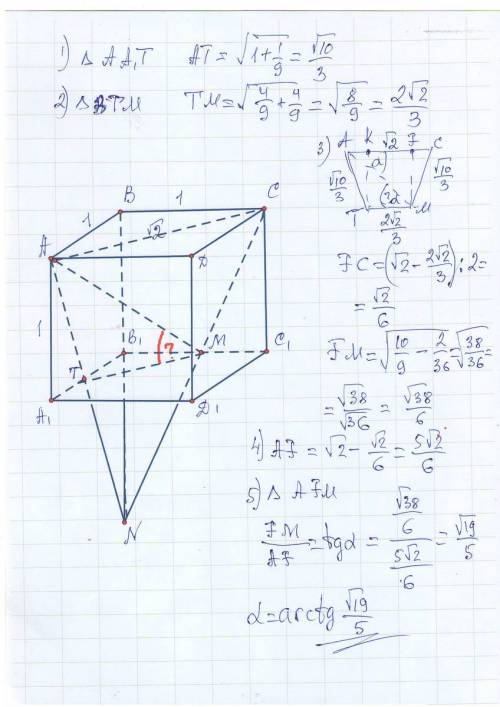 1) △ A A₁ T   AT = √(1 + 1/9) = √10/3
2) △ BTM   TM = √(4/9 + 4/9) = √(8/9) = 2√2/3
3)
A K √2 F C
α
√10/3 √10/3
α
T M
2√2/3
FC = (√2 − 2√2/3) : 2 =
= √2/6
FM = √(10/9 − 2/36) = √(38/36) =
= √38/√36 = √38/6
4) AF = √2 − √2/6 = 5√2/6
5) △ AFM
FM/AF = tg α = (√38/6)/(5√2/6) = √19/5
α = arctg √19/5
B 1 C
1 √2
A D
1
B₁ ? M C₁
T
A₁ D₁
N